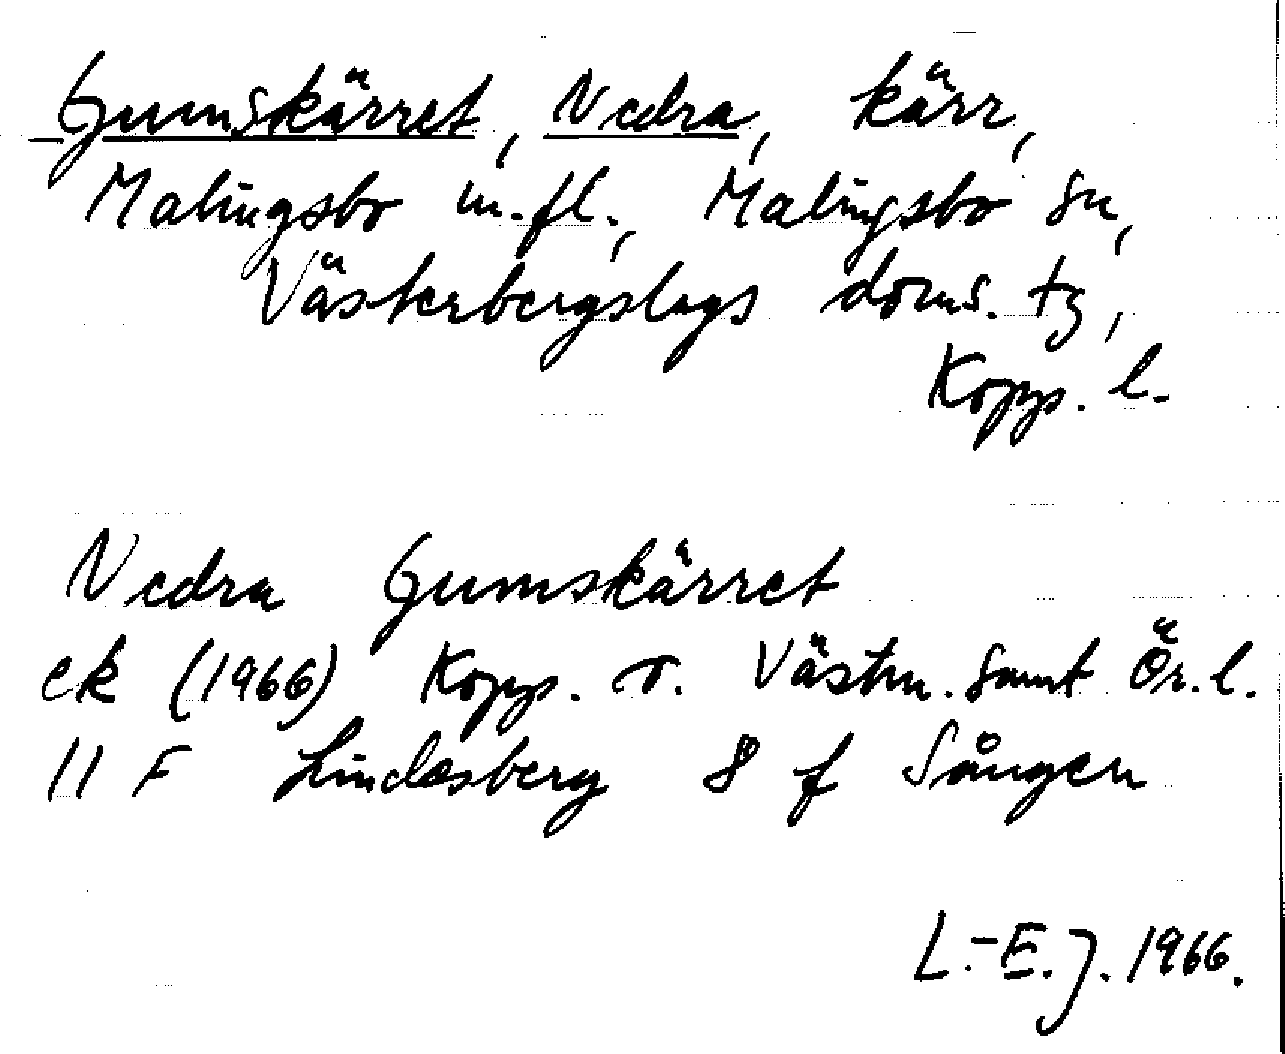 Gumskärret, Nedra, kärr,
Malingsbo m.fl., Malingsbo sn,
Västerbergslags doms. tg,
Kopp. l.
Nedra Gumskärret
ek (1966) Kopp. o. Västm. samt Ör. l.
11 F Lindesberg 8 f Sången
L.-E. J. 1966.